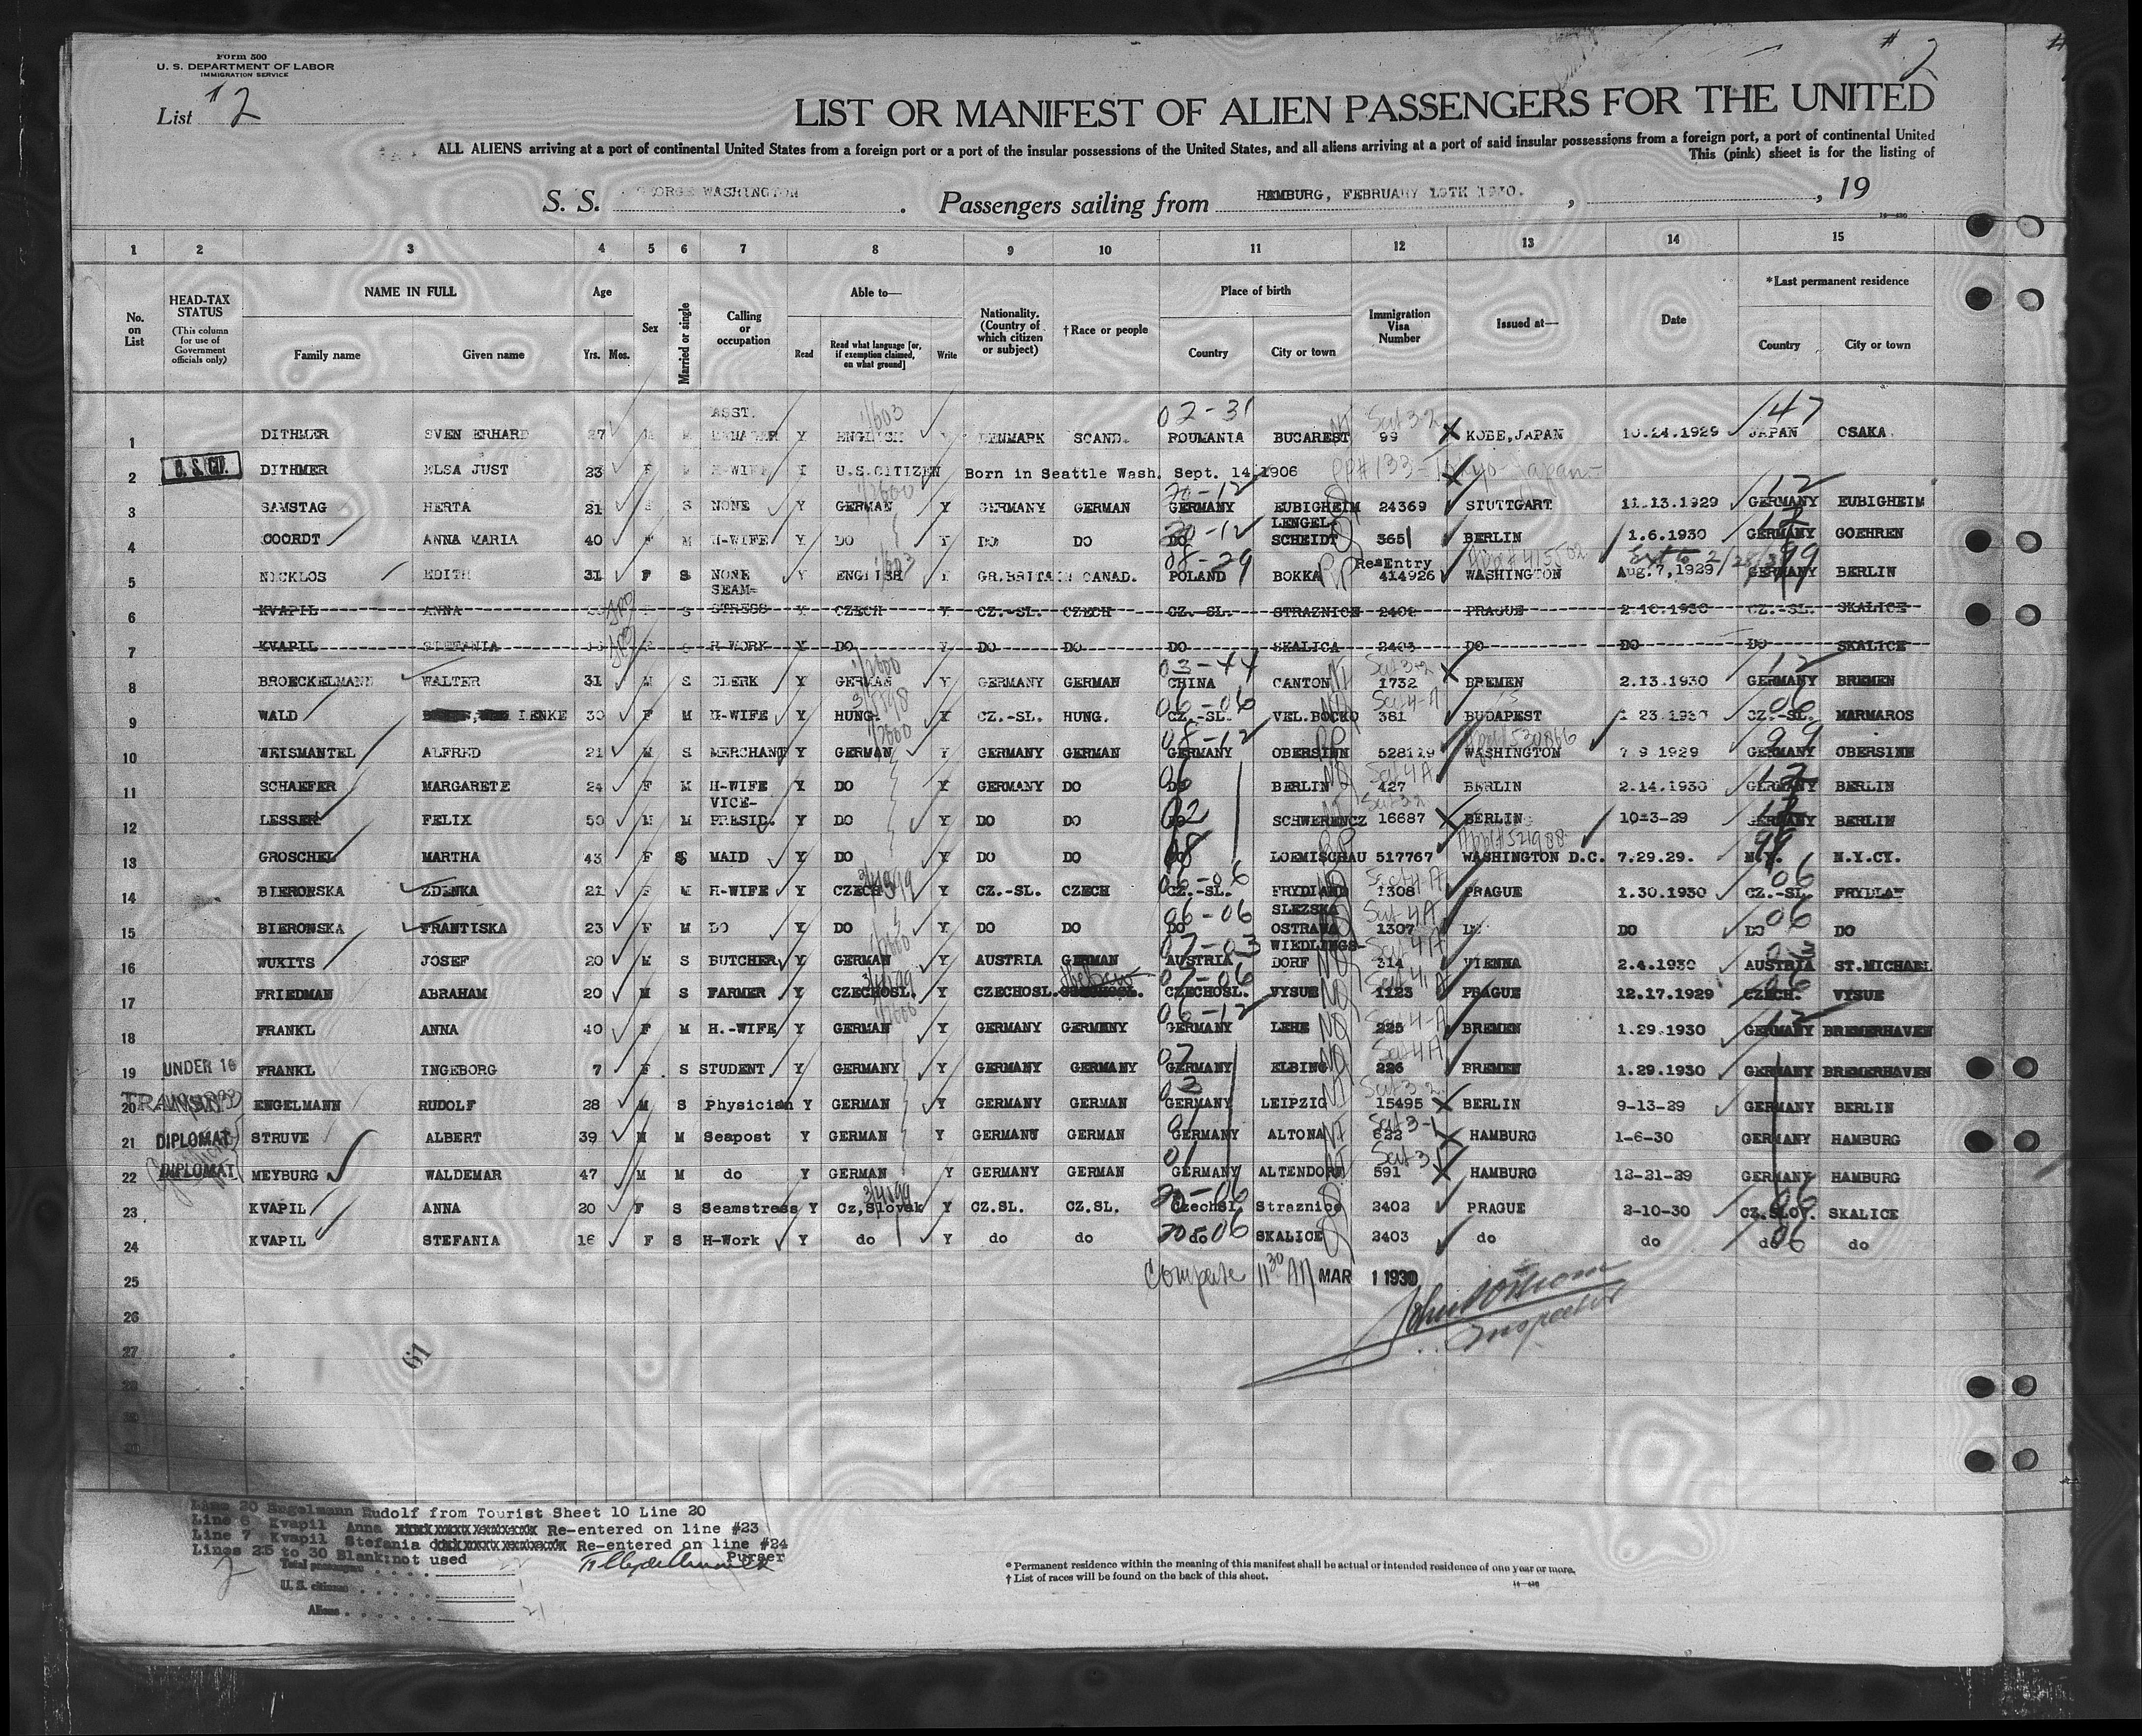 Form 500
U. S. DEPARTMENT OF LABOR
IMMIGRATION SERVICE
# 2
List #2
LIST OR MANIFEST OF ALIEN PASSENGERS FOR THE UNITED
ALL ALIENS arriving at a port of continental United States from a foreign port or a port of the insular possessions of the United States, and all aliens arriving at a port of said insular possessions from a foreign port, a port of continental United
This (pink) sheet is for the listing of
S. S. GEORGE WASHINGTON . Passengers sailing from HAMBURG, FEBRUARY 19TH 1930. , , 19
1 2 3 4 5 6 7 8 9 10 11 12 13 14 15
No. on List HEAD-TAX STATUS (This column for use of Government officials only) NAME IN FULL Family name Given name Age Yrs. Mos. Sex Married or single Calling or occupation Able to— Read Read what language [or, if exemption claimed, on what ground] Write Nationality. (Country of which citizen or subject) †Race or people Place of birth Country City or town Immigration Visa Number Issued at— Date *Last permanent residence Country City or town
1 DITHMER SVEN ERHARD 37 M M ASST. MANAGER Y ENGLISH Y DENMARK SCAND. 02-31 ROUMANIA BUCAREST 99 KOBE, JAPAN 10.24.1929 JAPAN OSAKA
2 U.S.CIT. DITHMER ELSA JUST 23 F M H-WIFE Y U.S.CITIZEN Born in Seattle Wash. Sept. 14,1906 PP#133-Tokyo-Japan-
3 SAMSTAG HERTA 21 F S NONE Y GERMAN Y GERMANY GERMAN GERMANY EUBIGHEIM 24369 STUTTGART 11.13.1929 GERMANY EUBIGHEIM
4 COORDT ANNA MARIA 40 F M H-WIFE Y DO Y DO DO DO LENGEL-SCHEIDT 3651 BERLIN 1.6.1930 GERMANY GOEHREN
5 NICKLOS EDITH 31 F S NONE Y ENGLISH Y GR.BRITAIN CANAD. POLAND BOKKA Re-Entry 414926 WASHINGTON Aug.7,1929 GERMANY BERLIN
6 KVAPIL ANNA S SEAM-STRESS Y CZECH Y CZ.-SL. CZECH CZ.-SL. STRAZNICE 2402 PRAGUE 2.10.1930 CZ.-SL. SKALICE
7 KVAPIL STEFANIA S H-WORK Y DO Y DO DO DO SKALICA 2403 DO DO DO SKALICE
8 BROECKELMANN WALTER 31 M S CLERK Y GERMAN Y GERMANY GERMAN 03-44 CHINA CANTON 1732 BREMEN 2.13.1930 GERMANY BREMEN
9 WALD LENKE 30 F M H-WIFE Y HUNG. Y CZ.-SL. HUNG. 06-06 CZ.-SL. VEL.BOCKO 381 BUDAPEST 1 23.1930 CZ.-SL. MARMAROS
10 WEISMANTEL ALFRED 21 M S MERCHANT Y GERMAN Y GERMANY GERMAN 08-12 GERMANY OBERSINN 528119 WASHINGTON 7 9 1929 GERMANY OBERSINN
11 SCHAEFER MARGARETE 24 F M H-WIFE Y DO Y GERMANY DO DO BERLIN 427 BERLIN 2.14.1930 GERMANY BERLIN
12 LESSER FELIX 50 M M VICE-PRESID. Y DO Y DO DO DO SCHWERENCZ 16687 BERLIN 10-3-29 GERMANY BERLIN
13 GROSCHEL MARTHA 43 F S MAID Y DO Y DO DO LOEMISCHAU 517767 WASHINGTON D.C. 7.29.29. N.Y. N.Y.CY.
14 BIERONSKA ZDENKA 21 F M H-WIFE Y CZECH Y CZ.-SL. CZECH 06-06 CZ.-SL. FRYDLAND 1308 PRAGUE 1.30.1930 CZ.-SL. FRYDLAN
15 BIERONSKA FRANTISKA 23 F M DO Y DO Y DO DO 06-06 DO SLEZSKA OSTRAWA 1307 DO DO DO DO
16 WUXITS JOSEF 20 M S BUTCHER Y GERMAN Y AUSTRIA GERMAN 07-03 AUSTRIA WIEDLINGS-DORF 314 VIENNA 2.4.1930 AUSTRIA ST.MICHAEL
17 FRIEDMAN ABRAHAM 20 M S FARMER Y CZECHOSL. Y CZECHOSL. Hebrew 07-06 CZECHOSL. VYSUE 1123 PRAGUE 12.17.1929 CZECH. VYSUE
18 FRANKL ANNA 40 F M H.-WIFE Y GERMAN Y GERMANY GERMANY 06-12 GERMANY LEHE 225 BREMEN 1.29.1930 GERMANY BREMERHAVEN
19 UNDER 16 FRANKL INGEBORG 7 F S STUDENT Y GERMANY Y GERMANY GERMANY 07 GERMANY ELBING 226 BREMEN 1.29.1930 GERMANY BREMERHAVEN
20 ENGELMANN RUDOLF 28 M S Physician Y GERMAN Y GERMANY GERMAN 03 GERMANY LEIPZIG 15495 BERLIN 9-13-29 GERMANY BERLIN
21 DIPLOMAT STRUVE ALBERT 39 M M Seapost Y GERMAN GERMANY GERMAN 01 GERMANY ALTONA 622 HAMBURG 1-6-30 GERMANY HAMBURG
22 DIPLOMAT MEYBURG WALDEMAR 47 M M do Y GERMAN Y GERMANY GERMAN 01 GERMANY ALTENDORF 591 HAMBURG 12-21-29 GERMANY HAMBURG
23 KVAPIL ANNA 20 F S Seamstress Y Cz,Slovak Y CZ.SL. CZ.SL. Czechsl. Straznice 2402 PRAGUE 2-10-30 CZ.SLOV. SKALICE
24 KVAPIL STEFANIA 16 F S H-Work Y do Y do do do SKALICE 2403 do do do do
25 Compare 11 30 AM MAR 1 1930
26 Inspector
27
28
29
30
61
Line 20 Engelmann Rudolf from Tourist Sheet 10 Line 20
Line 6 Kvapil Anna Re-entered on line #23
Line 7 Kvapil Stefania Re-entered on line #24
Lines 25 to 30 Blank:not used Purser
Total passengers
U. S. citizens
Aliens 21
* Permanent residence within the meaning of this manifest shall be actual or intended residence of one year or more.
† List of races will be found on the back of this sheet.